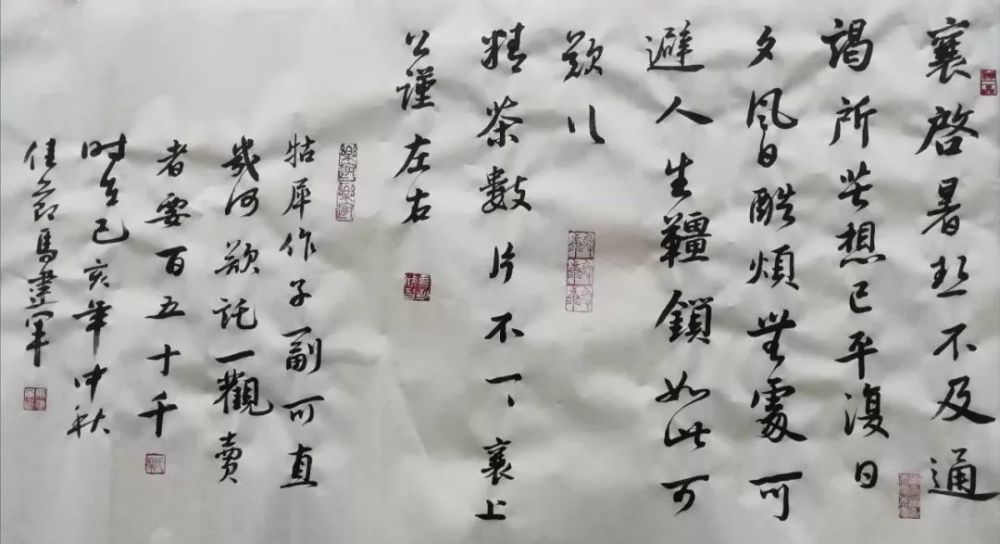 襄啓暑熱不及通
謁所苦想已平復日
夕風日酷煩無處可
避人生韁鎖如此可
歎〻
精茶數片不一〻襄上
公謹左右
牯犀作子一副可直
幾何欲託一觀賣
者要百五十千
時在己亥年中秋
佳節馬建軍